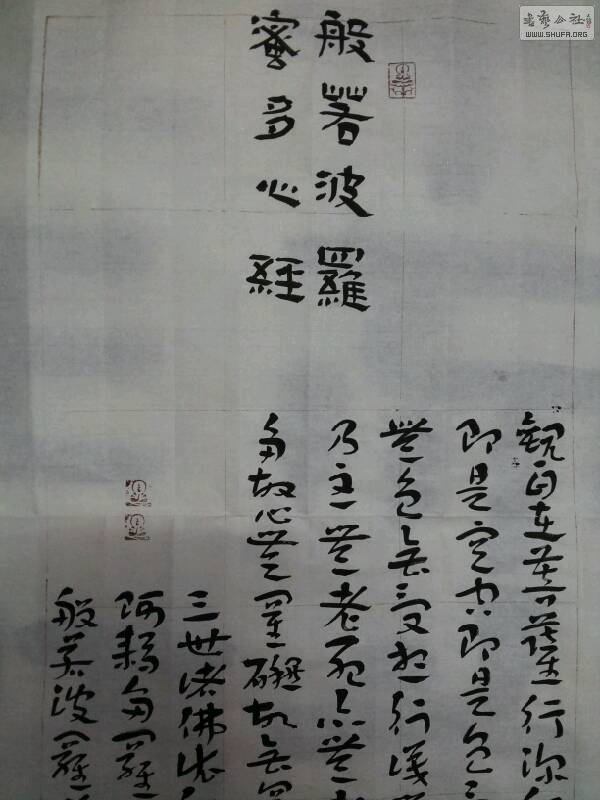 般若波羅
蜜多心經
觀自在菩薩行深
即是空空即是色
無色無受想行識
乃至無老死亦無
多故心無罣礙故無罣
三世諸佛依
阿耨多羅
般若波羅
書藝公社
WWW.SHUFA.ORG